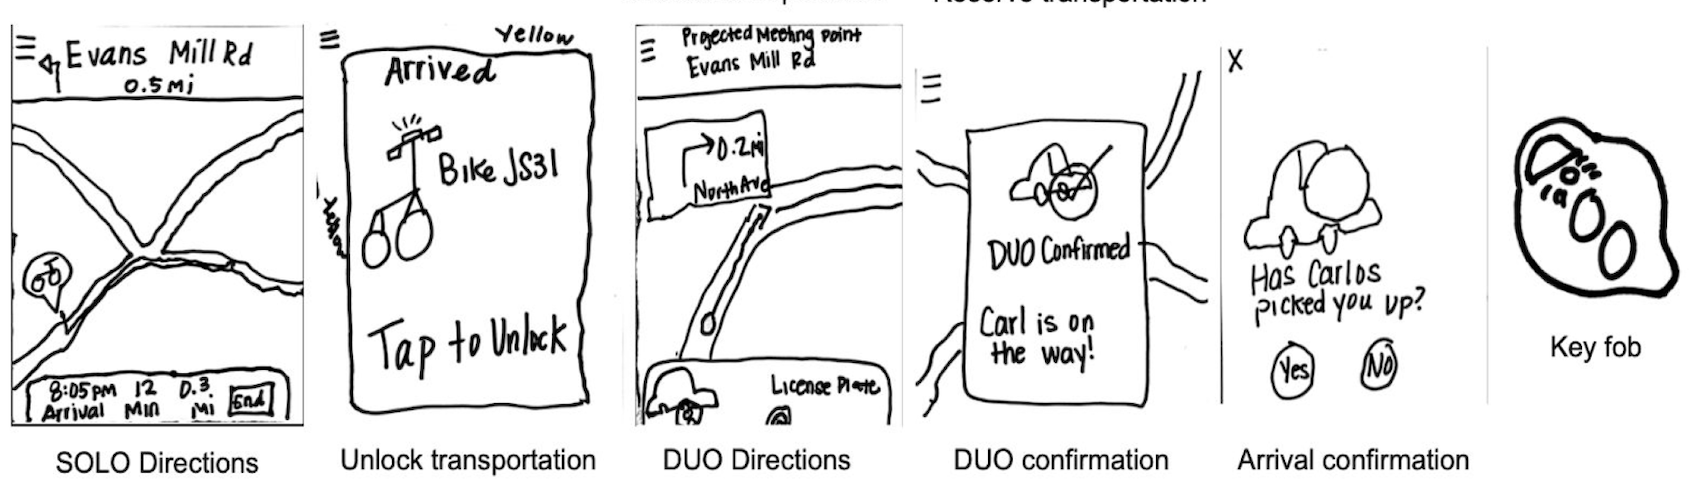 Reserve transportation
Evans Mill Rd
0.5 Mi
8:05pm 12 0.3
Arrival Min Mi
End
SOLO Directions
Yellow
Arrived
Bike JS31
Tap to Unlock
Unlock transportation
Projected Meeting Point
Evans Mill Rd
0.2 Mi
North Ave
License Plate
DUO Directions
DUO Confirmed
Carl is on
the way!
DUO confirmation
X
Has Carlos
picked you up?
Yes No
Arrival confirmation
Key fob